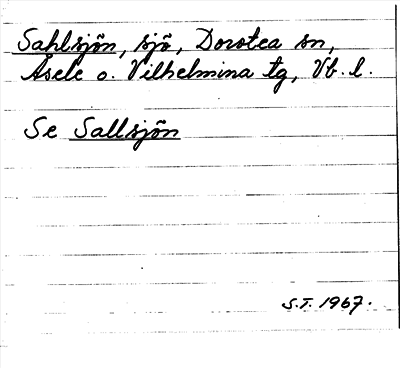 Sahlsjön, sjö, Dorotea sn,
Åsele o. Vilhelmina tg, Vb. l.
Se Sallsjön
S.T. 1967.